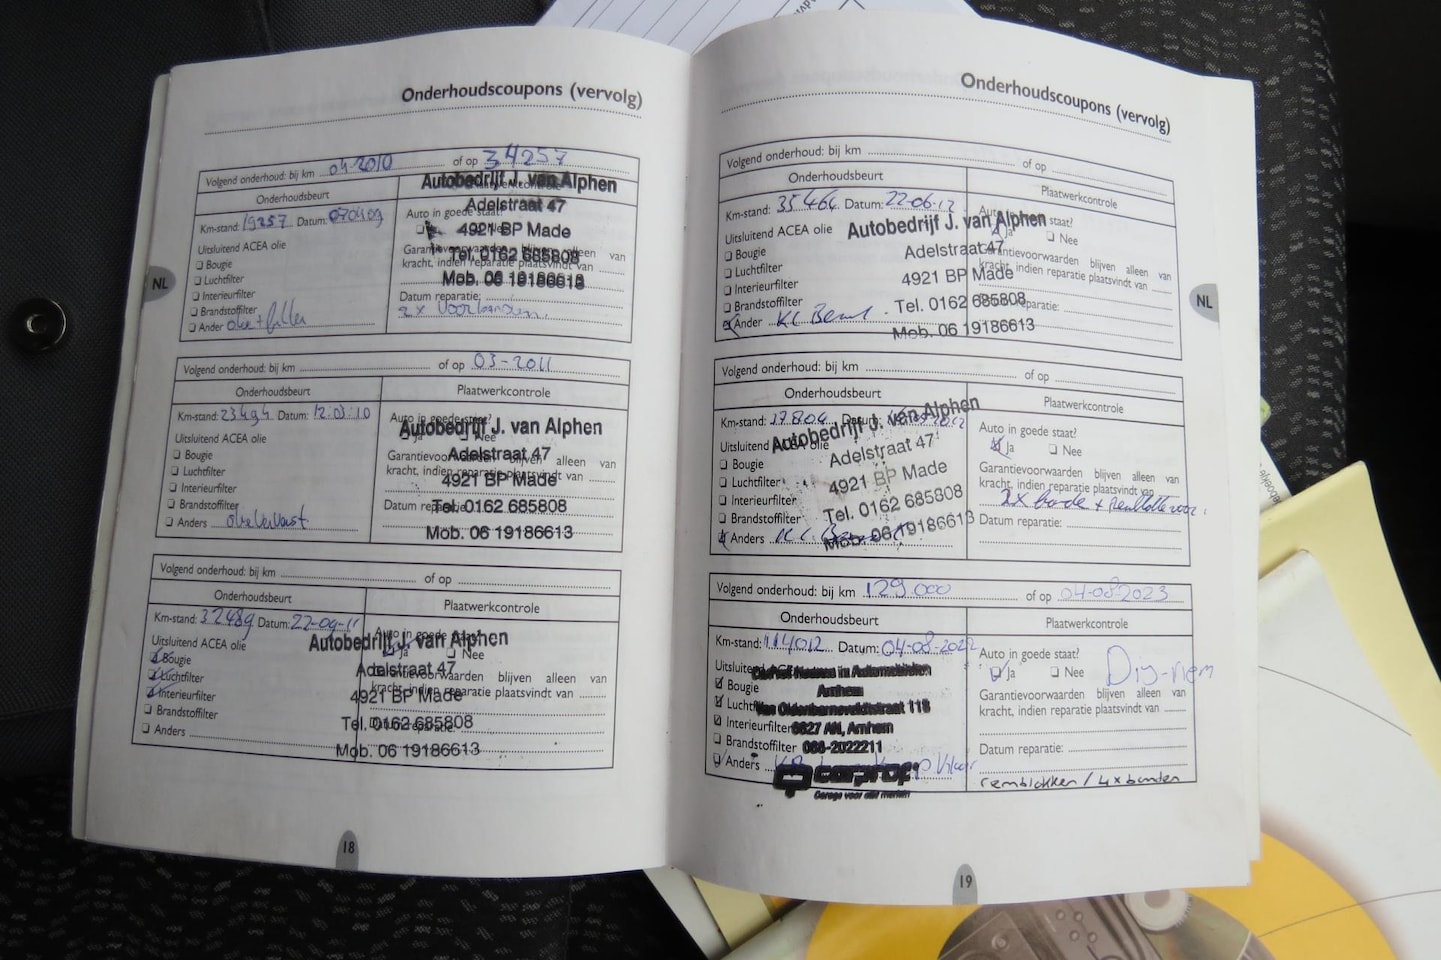 Onderhoudscoupons (vervolg)
Volgend onderhoud: bij km 04-2010 of op 34257
Onderhoudsbeurt
Km-stand: 19257 Datum: 070409
Uitsluitend ACEA olie
Bougie
Luchtfilter
Interieurfilter
Brandstoffilter
Ander olie + filter
Auto in goede staat?
Garantievoorwaarden blijven alleen van
kracht, indien reparatie plaatsvindt van
Datum reparatie:
2x Voorbanden.
Autobedrijf J. van Alphen
Adelstraat 47
4921 BP Made
Tel. 0162 685808
Mob. 06 19186613
Volgend onderhoud: bij km of op 03-2011
Onderhoudsbeurt
Plaatwerkcontrole
Km-stand: 23494 Datum: 12-03-10
Uitsluitend ACEA olie
Bougie
Luchtfilter
Interieurfilter
Brandstoffilter
Anders olie ververst
Auto in goede staat?
Ja Nee
Garantievoorwaarden blijven alleen van
kracht, indien reparatie plaatsvindt van
Datum reparatie:
Autobedrijf J. van Alphen
Adelstraat 47
4921 BP Made
Tel. 0162 685808
Mob. 06 19186613
Volgend onderhoud: bij km of op
Onderhoudsbeurt
Plaatwerkcontrole
Km-stand: 32489 Datum: 22-04-11
Uitsluitend ACEA olie
Bougie
Luchtfilter
Interieurfilter
Brandstoffilter
Anders
Auto in goede staat?
Ja Nee
Garantievoorwaarden blijven alleen van
kracht, indien reparatie plaatsvindt van
Datum reparatie:
Autobedrijf J. van Alphen
Adelstraat 47
4921 BP Made
Tel. 0162 685808
Mob. 06 19186613
NL
18
Onderhoudscoupons (vervolg)
Volgend onderhoud: bij km of op
Onderhoudsbeurt
Plaatwerkcontrole
Km-stand: 35464 Datum: 22-06-12
Uitsluitend ACEA olie
Bougie
Luchtfilter
Interieurfilter
Brandstoffilter
Ander Kl Beurt
Auto in goede staat?
Ja Nee
Garantievoorwaarden blijven alleen van
kracht, indien reparatie plaatsvindt van
Datum reparatie:
Autobedrijf J. van Alphen
Adelstraat 47
4921 BP Made
Tel. 0162 685808
Mob. 06 19186613
Volgend onderhoud: bij km of op
Onderhoudsbeurt
Plaatwerkcontrole
Km-stand: Datum:
Uitsluitend ACEA olie
Bougie
Luchtfilter
Interieurfilter
Brandstoffilter
Anders
Auto in goede staat?
Ja Nee
Garantievoorwaarden blijven alleen van
kracht, indien reparatie plaatsvindt van
Datum reparatie:
Autobedrijf J. van Alphen
Adelstraat 47
4921 BP Made
Tel. 0162 685808
Mob. 06 19186613
Volgend onderhoud: bij km 129.000 of op 04-08 2023
Onderhoudsbeurt
Plaatwerkcontrole
Km-stand: 114012 Datum: 04-08-2022
Bougie
Interieurfilter
Brandstoffilter
Anders
Auto in goede staat?
Ja Nee
Garantievoorwaarden blijven alleen van
kracht, indien reparatie plaatsvindt van
Datum reparatie:
remblokken / 4x banden
Arnhem
Van Oldenbarneveldtstraat 116
6827 AN, Arnhem
088-2022211
carprof
Garage voor alle merken
NL
19